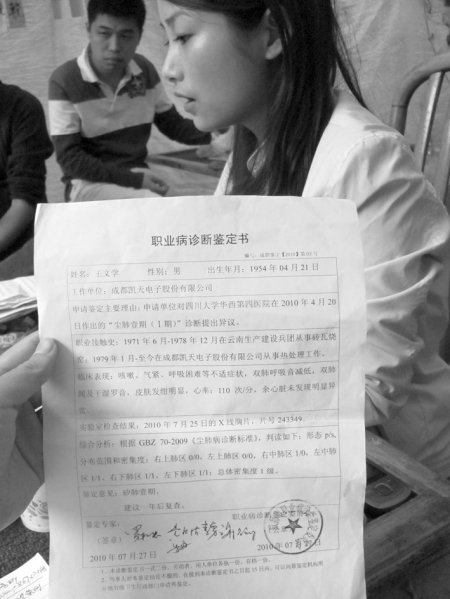 职业病诊断鉴定书
姓名：王文学 性别：男 出生年月：1954 年 04 月 21 日
工作单位：成都凯天电子股份有限公司
申请鉴定主要理由：申请单位对四川大学华西第四医院在 2010 年 4 月 20
日作出的“尘肺壹期（Ⅰ期）”诊断提出异议。
职业接触史：1971 年 6 月-1978 年 12 月在云南生产建设兵团从事砖瓦烧
窑；1979 年 1 月-至今在成都凯天电子股份有限公司从事热处理工作。
临床表现：咳嗽、气紧、呼吸困难等不适症状，双肺呼吸音减低，双肺
闻及干湿罗音，皮肤发绀明显，心率：110 次/分，余心脏未发现明显异
常。
实验室检查结果：2010 年 7 月 25 日的 X 线胸片，片号 243349。
综合分析：根据 GBZ 70-2009《尘肺病诊断标准》，判读如下：形态 p/s,
分布范围和密集度：右上肺区 0/0，左上肺区 0/0，右中肺区 1/0，左中肺
区 1/1，右下肺区 1/1，左下肺区 1/1；总体密集度 1 级。
鉴定意见：矽肺壹期。
建议 年后复查。
鉴定专家：
（签章）
职业病诊断鉴定
2010 年 07 月 27 日
2010 年 07 月